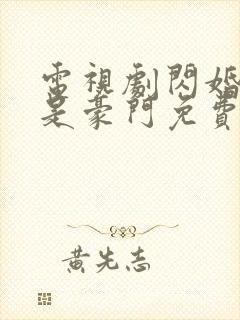 電視劇閃婚
是豪門免費
黃先志